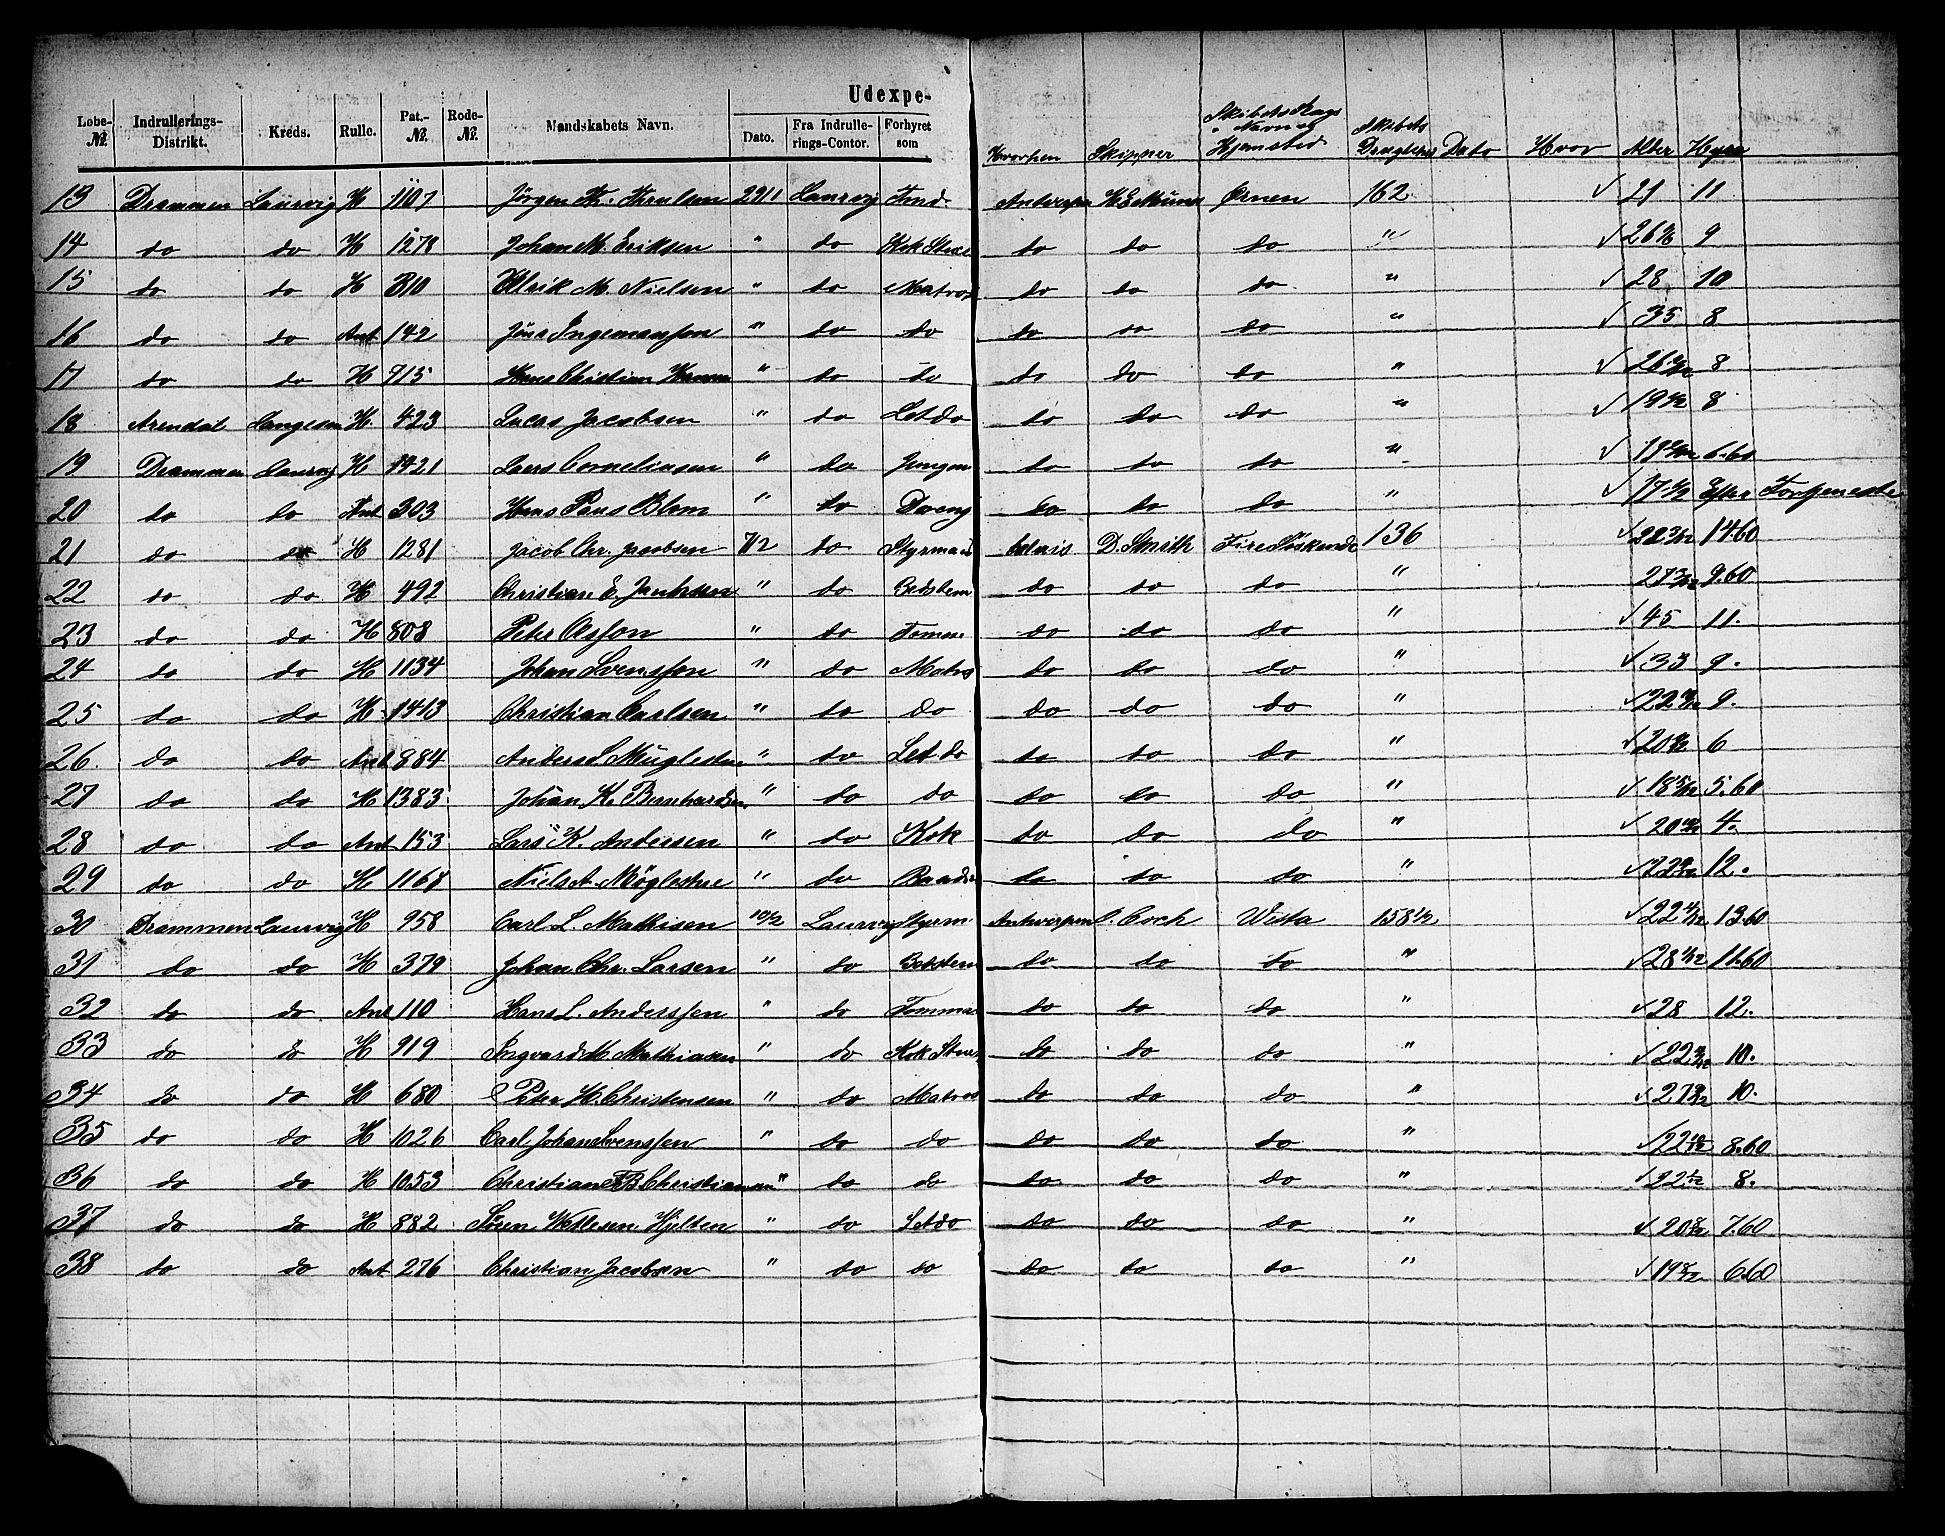 Udexpe-
Løbe- № Indrullerings- Distrikt. Kreds. Rulle. Pat.- № Rode- № Mandskabets Navn. Dato. Fra Indrulle- rings-Contor. Forhyret som Hvorhen Skipper Skibets Navn Hjemsted Skibets Drægtihed Dato Hvor Alder Hyre
13 Drammen Laurvig H 1107 Jörgen Th. 29/1 Laurvig Antwerpen Örnen 162 √ 21 11
14 do do H 1278 Johan M. Eriksen " do Kok do do do " √ 26 9
15 do do H 310 Ulrik M. Nielsen " do Matros do do do " √ 28 10
16 do do Ant 142 Jöns Ingemansson " do do do do do " √ 35 8
17 do do H 715 Hans Christian Hansen " do do do do do " √ 26 8
18 Arendal Langesun H. 423 Lucas Jacobsen " do Letdo do do do " √ 19 8
19 Drammen Laurvig H 1421 Lars Corneliussen " do Jungm do do do " √ 19 6.60
20 do do Ant 303 Hans Paus Blom " do Dreng do do do " √ 17 Efter Fortjeneste
21 do do H 1281 Jacob Chr. Jacobsen 7/2 do Styrmand Calais D. Smith Fire Söskende 136 √ 22 14.60
22 do do H 492 Christian E. " do do do do " 27 9.60
23 do do H 808 Peter Olsson " do do do do " √ 45 11.
24 do do H 1134 Johan Svensson " do Matros do do do " √ 33 9.
25 do do H 1413 Christian Carlsen " do do do do do " √ 22 9.
26. do do Ant 384 Anders " do Letdo do do do " √ 20 6
27 do do H 1383 Johan K. Bernhardsen " do do do do do " √ 18 5/12 5.60
28 do do Ant 153 Lars K. Andersen " do Kok do do do " √ 20 4.
29 do do H 1167 Niels A. Möglestue " do do do do " √ 22 12.
30 Drammen Laurvig H 958 Carl L. Mathisen 10/2 Laurvig Styrm Antwerpen C. Coch Wista 158 1/2 √ 22 4/12 13.60
31 do do H 379 Johan Chr. Larsen " do do do do " √ 28 11.60
32 do do Ant 110 Hans L. Anderssen " do Tømma do do do " √ 28 12.
33 do do H 919 Ingvard M. Mathiasen " do Kok do do do " √ 22 10.
34 do do H 680 Peter H. Christensen " do Matros do do do " √ 27 10.
35 do do H 1026 Carl Johan Svenssen " do do do do do " √ 22 10/12 8.60
36 do do H 1053 Christian B Christiansen " do do do do do " √ 22 8.
37 do do H 882 Sören Hjelten " do Letdo do do do " √ 20 7.60
38 do do Ant 276 Christian Jacobsen " do do do do do " √ 19 6.60